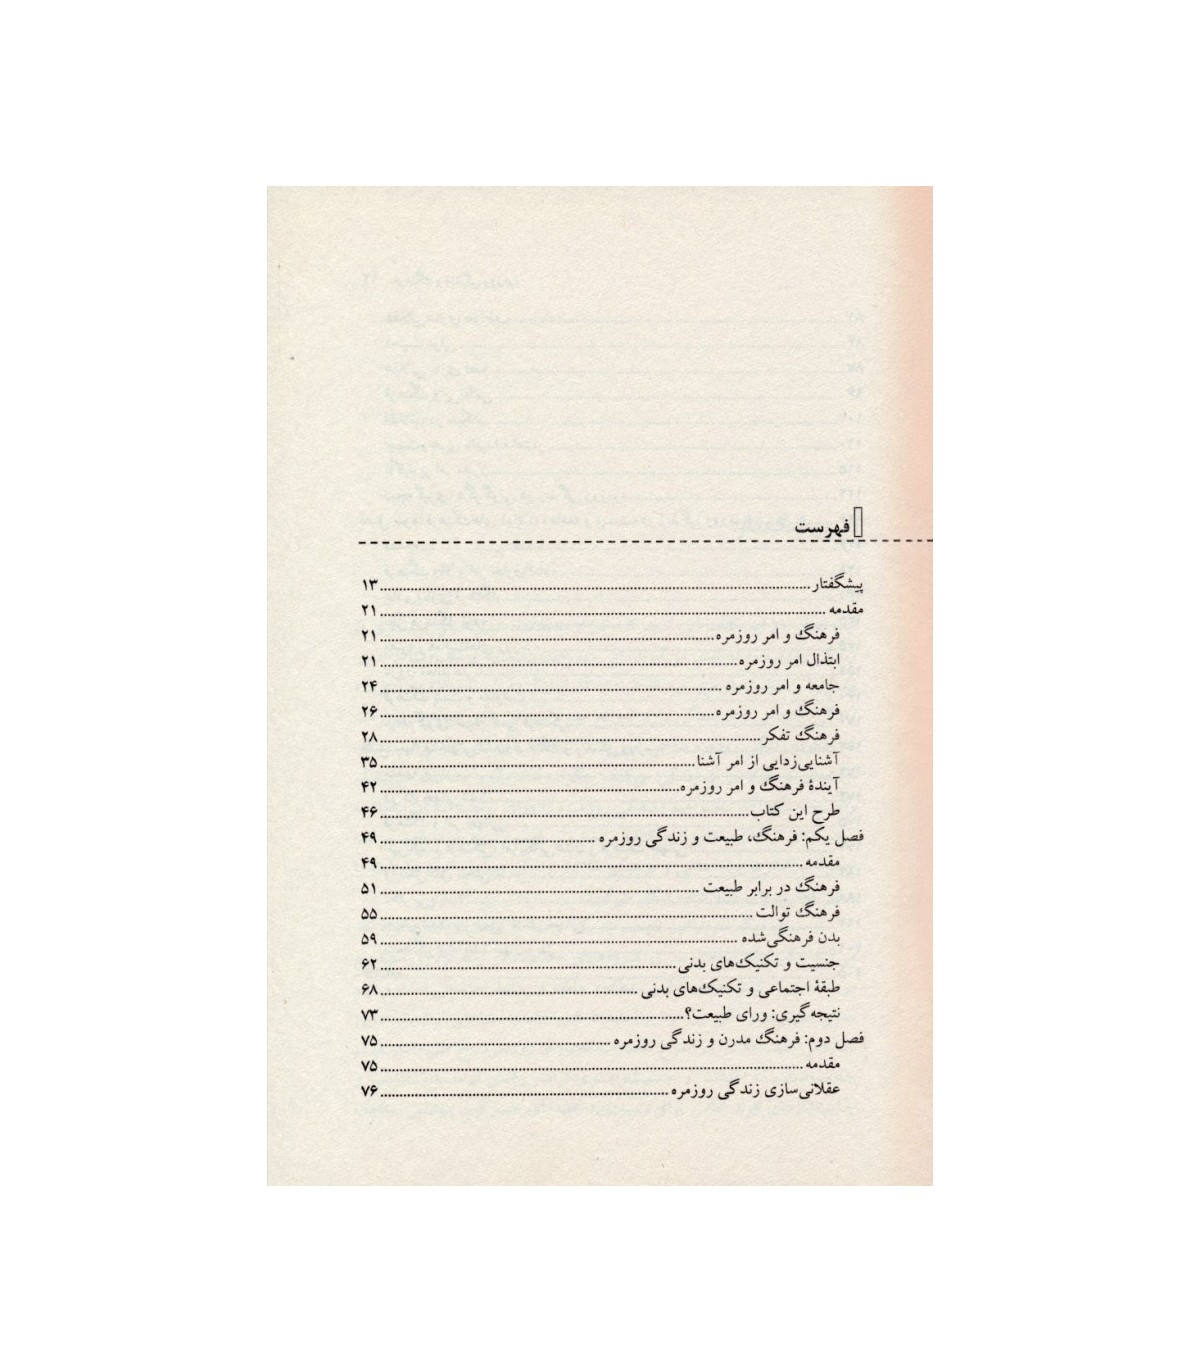 فهرست
پیشگفتار ........ ۱۳
مقدمه ........ ۲۱
فرهنگ و امر روزمره ........ ۲۱
ابتذال امر روزمره ........ ۲۱
جامعه و امر روزمره ........ ۲۴
فرهنگ و امر روزمره ........ ۲۶
فرهنگ تفکر ........ ۲۸
آشنایی‌زدایی از امر آشنا ........ ۳۵
آیندهٔ فرهنگ و امر روزمره ........ ۴۲
طرح این کتاب ........ ۴۶
فصل یکم: فرهنگ، طبیعت و زندگی روزمره ........ ۴۹
مقدمه ........ ۴۹
فرهنگ در برابر طبیعت ........ ۵۱
فرهنگ توالت ........ ۵۵
بدن فرهنگی‌شده ........ ۵۹
جنسیت و تکنیک‌های بدنی ........ ۶۲
طبقهٔ اجتماعی و تکنیک‌های بدنی ........ ۶۸
نتیجه‌گیری: ورای طبیعت؟ ........ ۷۳
فصل دوم: فرهنگ مدرن و زندگی روزمره ........ ۷۵
مقدمه ........ ۷۵
عقلانی‌سازی زندگی روزمره ........ ۷۶